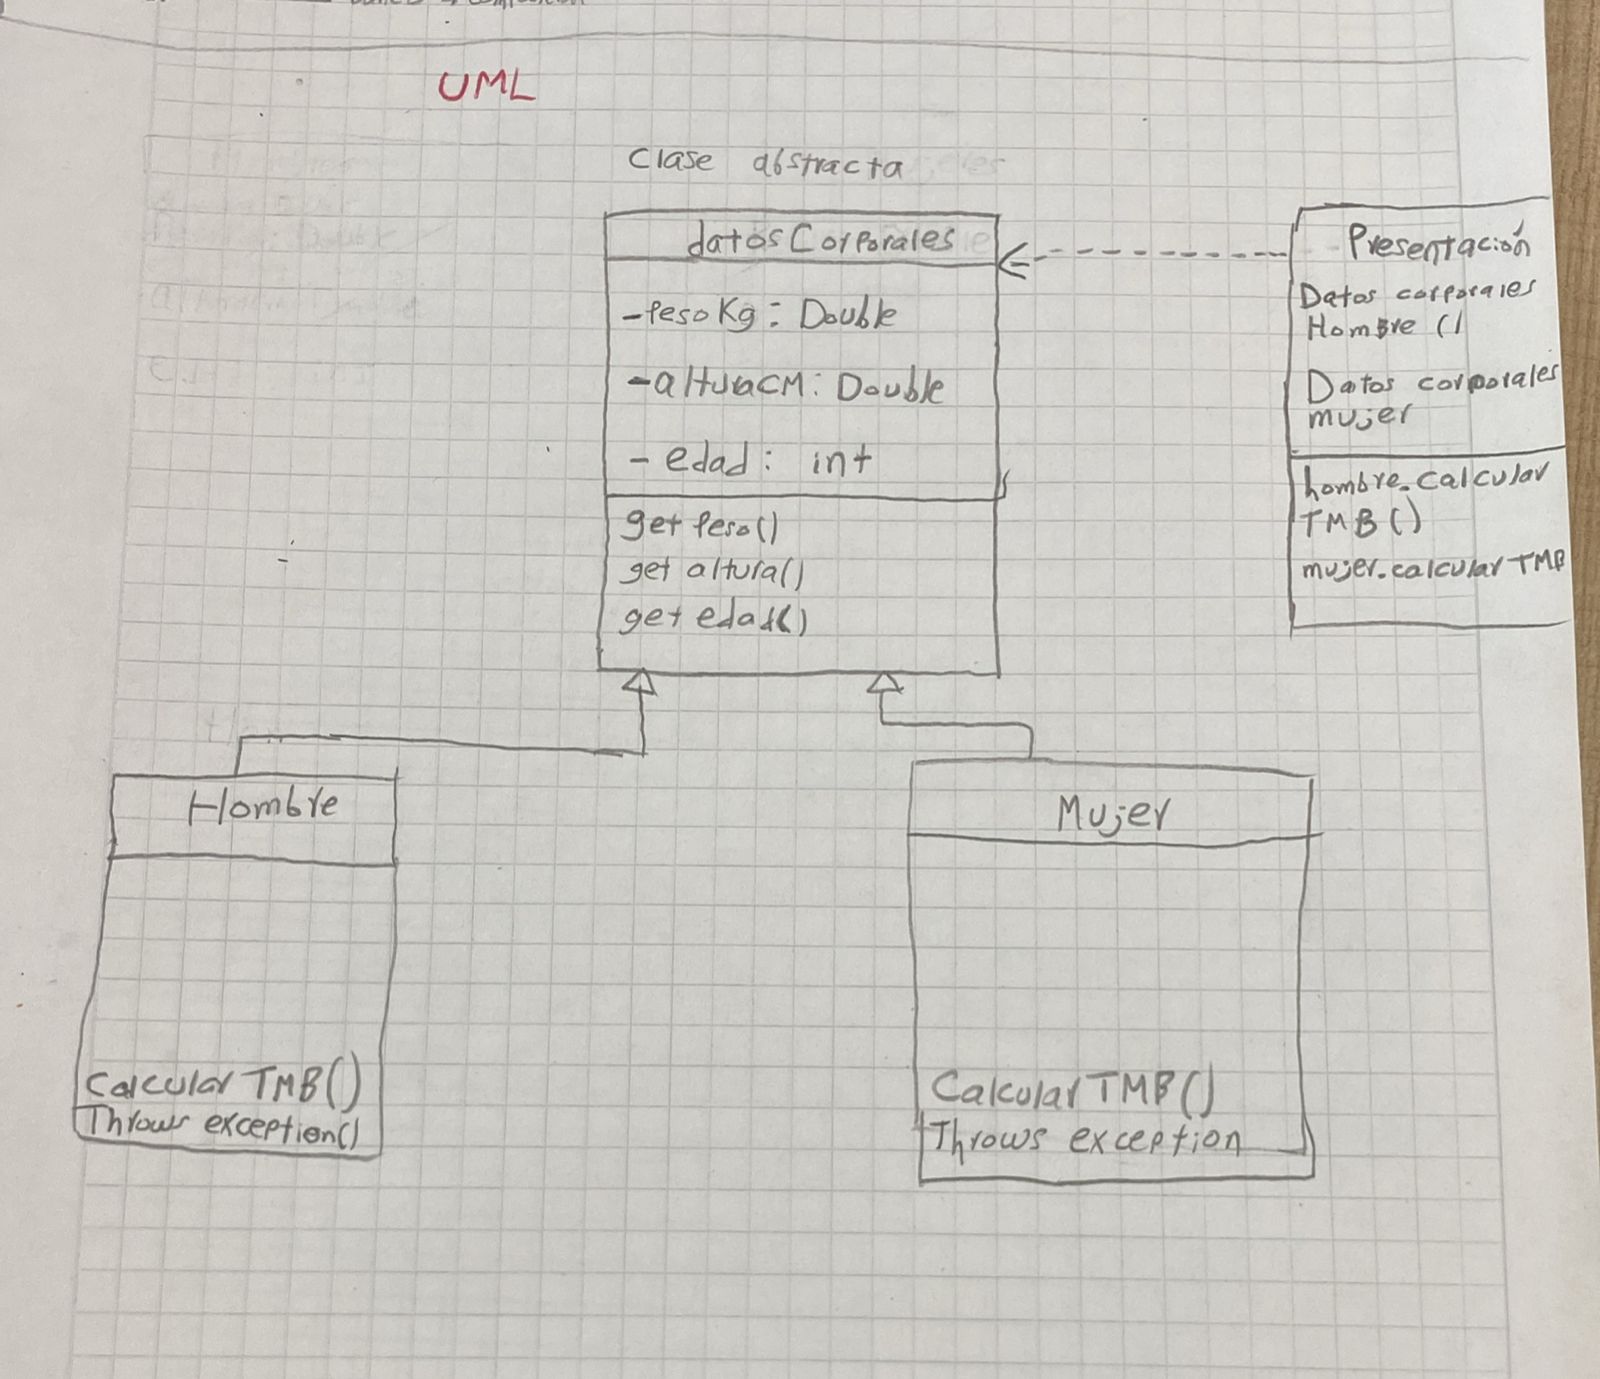 UML
Clase abstracta
datosCorporales
-PesoKg: Double
-alturaCM: Double
- edad: int
get Peso()
get altura()
get edad()
Presentación
Datos corporales
Hombre ()
Datos corporales
mujer
hombre.calcular
TMB ()
mujer.calcular TMB
Hombre
Calcular TMB()
Throws exception()
Mujer
Calcular TMB()
Throws exception